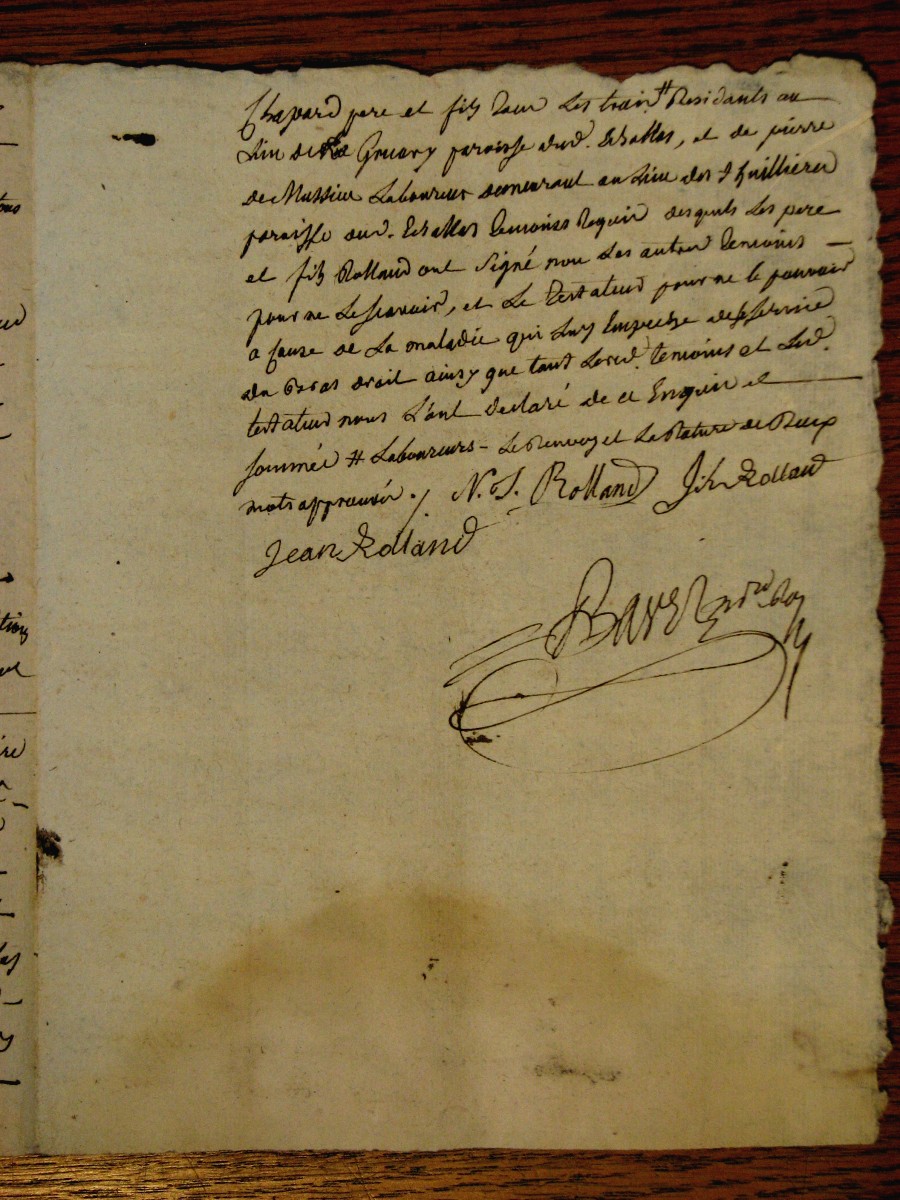 Chapard pere et fils tous les trois # Residants au
lieu de Gruary paroisse dud. Echallas, et de pierre
de Mussieu Laboureur demeurant au lieu des
paroisse dud. Echallas temoins Requis desquels les pere
et fils Rolland ont signé non les autres temoins —
pour ne le scavoir, et le testateur pour ne le pouvoir
a cause de la maladie qui luy Empeche
du bras droit ainsy que tout lesd. temoins et led.
testateur nous l'ont declaré de ce Enquis et
sommés # Laboureurs - le Renvoy et la Rature de Deux
mots approuvés ./ N. J. Rolland Rolland
Jean Rolland
Bavet